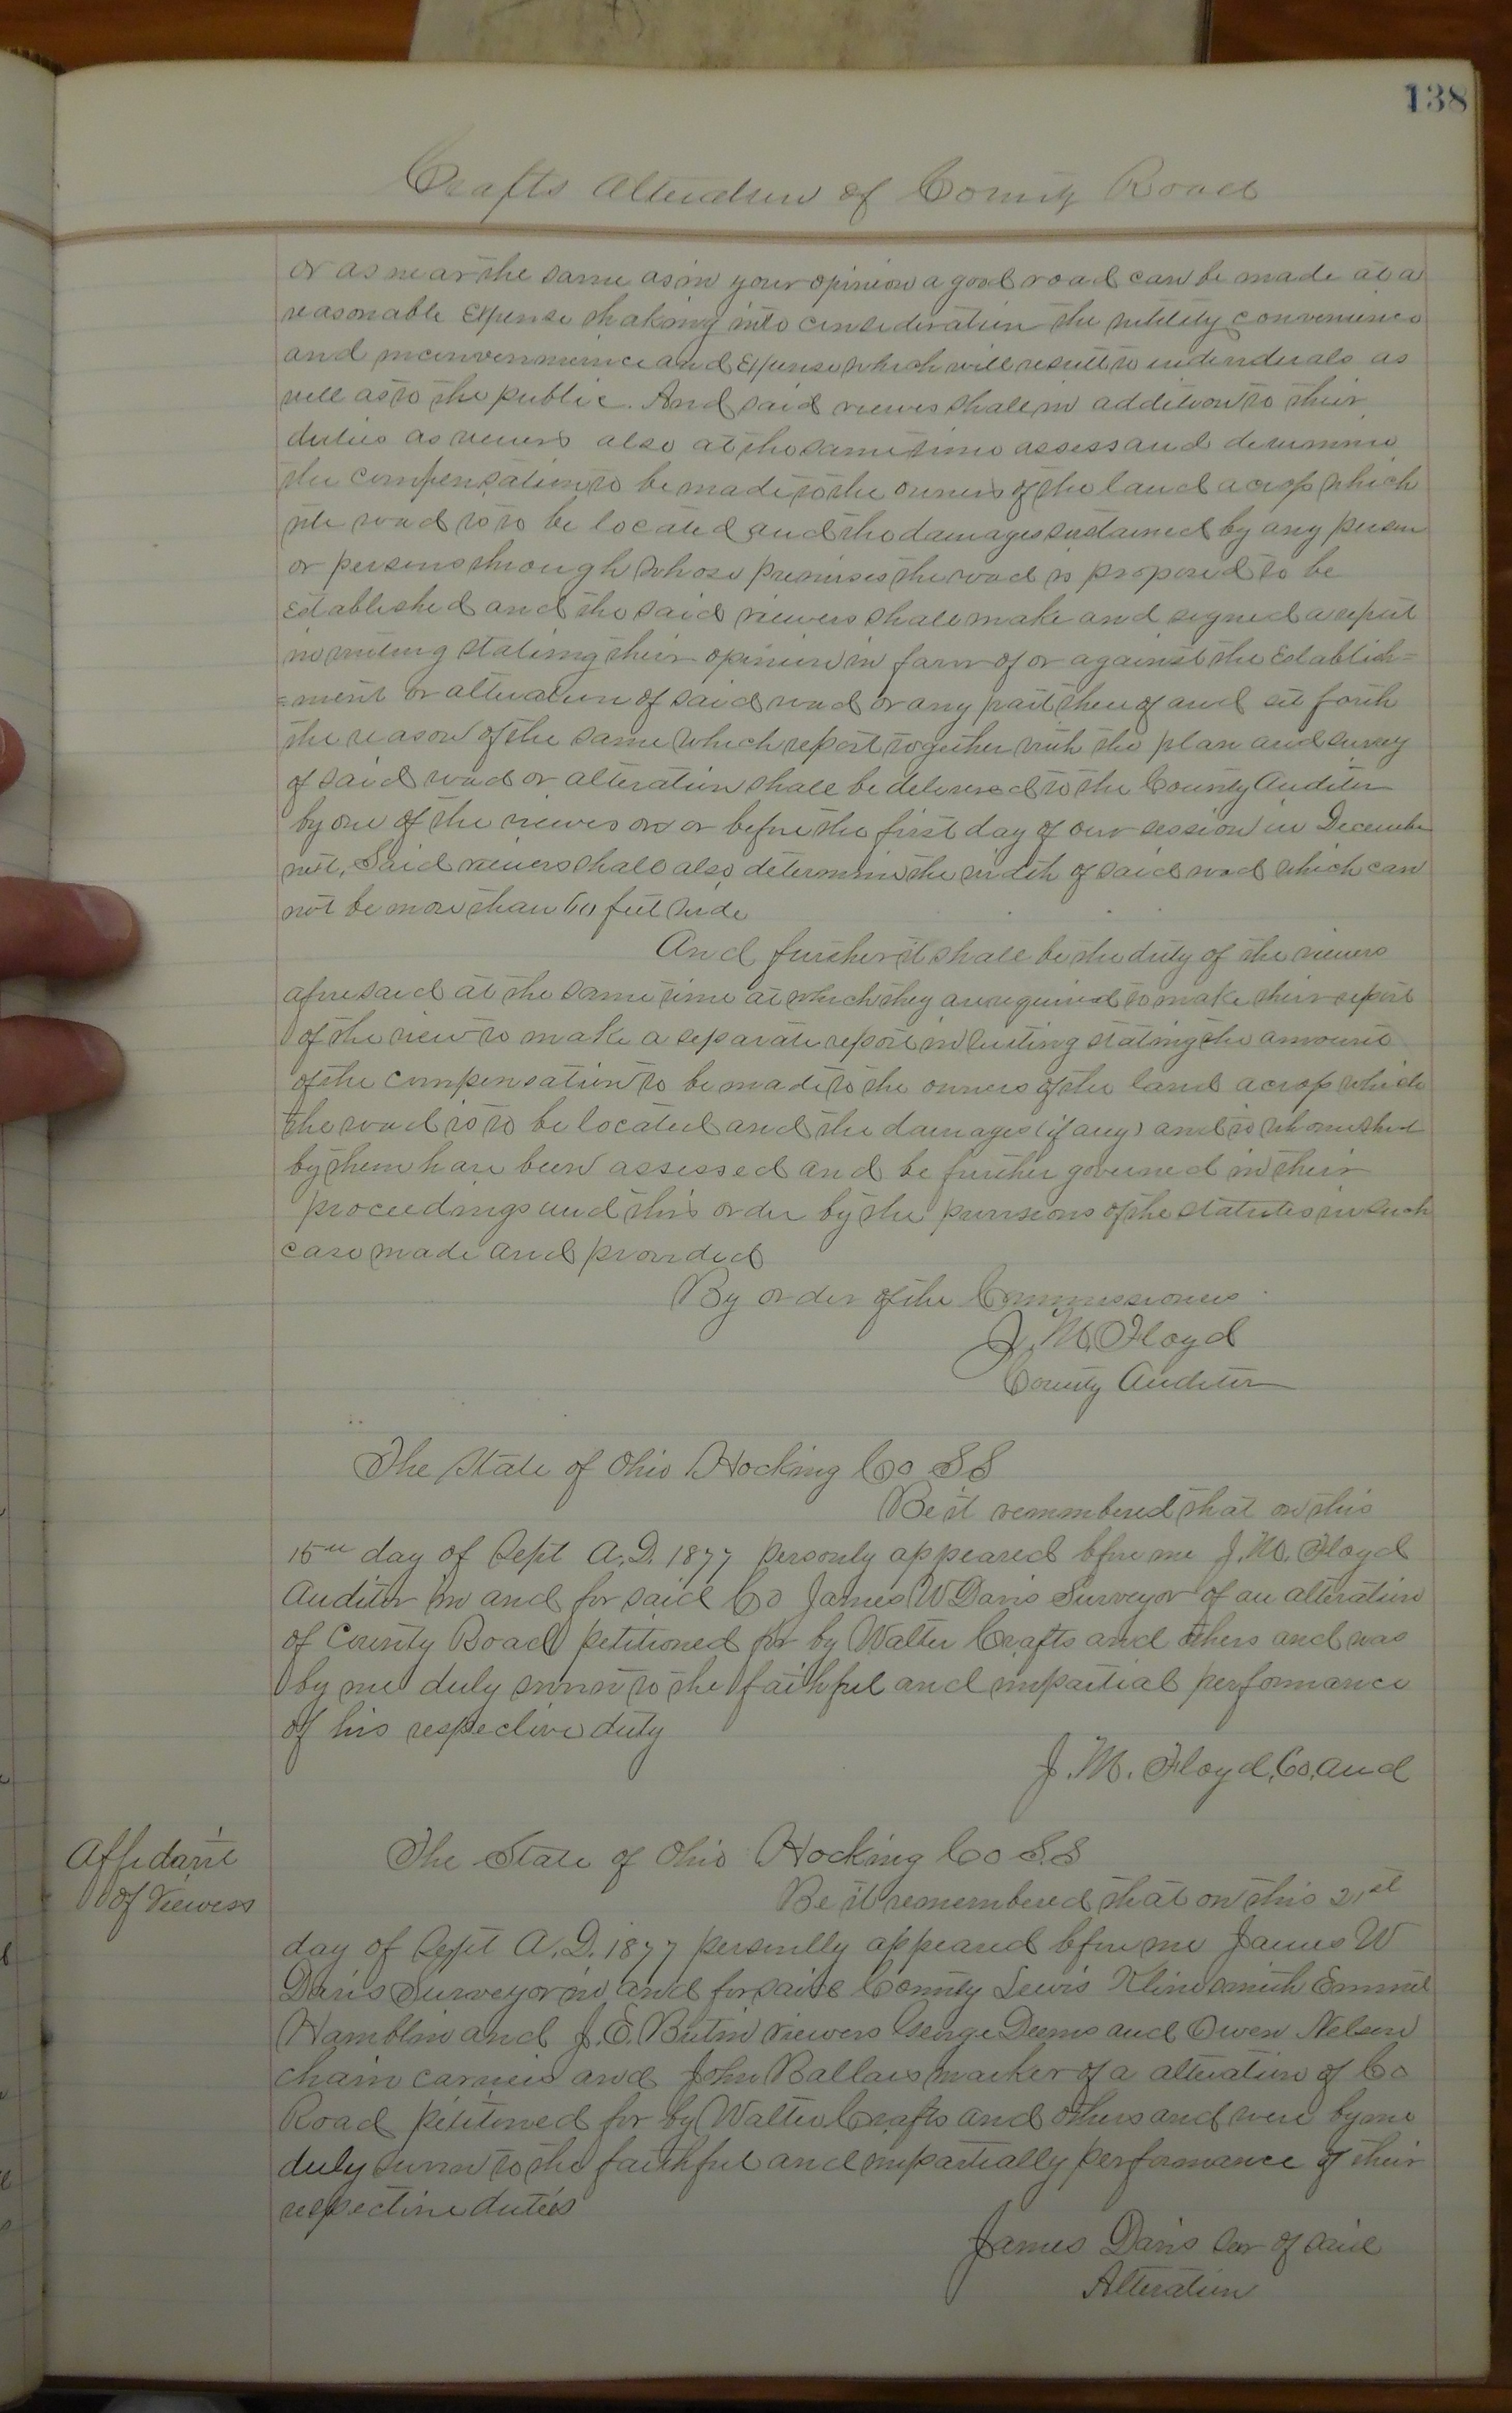 138
Crafts Alteration of County Road
or as near the same as in your opinion a good road can be made at a
reasonable Expense thaking into consideration the utility convenience
and inconvenience and Expense which will result to individuals as
well as to the public. And said viewers shall in addition to their
duties as viewers also at the same time assess and determine
the compensation to be made to the owners of the land across which
the road is to be located and the damages sustained by any person
or persons through whose premises the road is proposed to be
Established and the said viewers shall make and signed a report
in writing stating their opinion in favor of or against the Establish=
=ment or alteration of said road or any part thereof and set forth
the reason of the same which report together with the plan and survey
of said road or alteration shall be delivered to the County Auditor
by one of the viewers on or before the first day of our session in December
next, Said viewers shall also determine the width of said road which can
not be more than 60 feet wide
And further it shall be the duty of the viewers
aforesaid at the same time at which they are required to make their report
of the view to make a separate report in writing stating the amount
of the compensation to be made to the owners of the land across which
the road is to be located and the damages (if any) and to whom that
by them have been assessed and be further governed in their
proceedings und this order by the provisions of the statutes in such
case made and provided
By order of the Commissioners
J. M. Floyd
County Auditor
The State of Ohio Hocking Co SS
Be it remembered that on this
15th day of Sept A.D. 1877 personly appeared before me J. M. Floyd
Auditor in and for said Co James W Davis Surveyor of an alteration
of County Road petitioned for by Walter Crafts and others and was
by me duly sworn to the faithful and impartial performance
of his respective duty
J. M. Floyd, Co, Aud
Affidavit
of Viewers
The State of Ohio Hocking Co S.S
Be it remembered that on this 21st
day of Sept A.D. 1877 personlly appeared before me James W
Davis Surveyor in and for said County Lewis Klinesmith
Hamblin and J. E. Butin viewers George Deems and Owen Nelson
chain carriers and John Ballars marker of a alteration of Co
Road petitioned for by Walter Crafts and others and were by me
duly sworn to the faithful and impartially performance of their
respective duties
James Davis Sur of said
Alteration